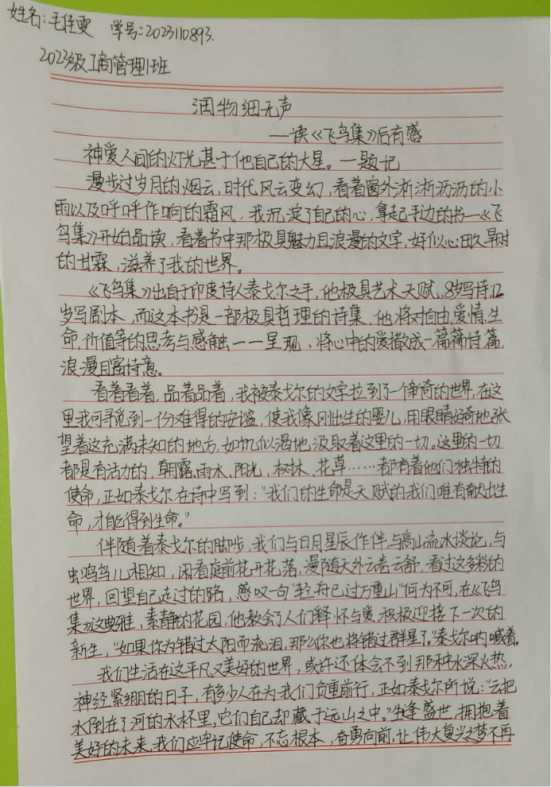 姓名:毛佳雯 学号:2023110893.
2023级工商管理1班
润物细无声
——读《飞鸟集》后有感
神爱人间的灯光甚于他自己的大星。—题记
漫步过岁月的烟云,时代风云变幻,看着窗外淅淅沥沥的小
雨以及呼呼作响的霜风,我沉淀了自己的心,拿起手边的书—《飞
鸟集》开始品读,看着书中那极具魅力且浪漫的文字,好似心田久旱时
的甘霖,滋养了我的世界。
《飞鸟集》出自于印度诗人泰戈尔之手,他极具艺术天赋,8岁写诗12
岁写剧本,而这本书是一部极具哲理的诗集,他将对自由、爱情、生
命、价值等的思考与感触一一呈现,将心中的爱撒成一篇篇诗篇,
浪漫且富诗意。
看着看着,品着品着,我被泰戈尔的文字拉到了一个新奇的世界,在这
里我可寻觅到一份难得的安谧,使我像刚出生的婴儿,用眼睛好奇地张
望着这充满未知的地方,如饥似渴地汲取着这里的一切。这里的一切
都是有活力的,朝露、雨水、阳光、树林、花草……都有着他们独特的
使命,正如泰戈尔在诗中写到:“我们的生命是天赋的我们唯有献出生
命,才能得到生命。”
伴随着泰戈尔的脚步,我们与日月星辰作伴,与高山流水谈论,与
虫鸣鸟儿相知,闲看庭前花开花落,漫随天外云卷云舒,看过这多彩的
世界,回望自己走过的路,感叹一句“轻舟已过万重山”何为不可,在《飞鸟
集》这典雅,素静的花园,他教会了人们释怀与爱,积极迎接下一次的
新生,“如果你为错过太阳而流泪,那么你也将错过群星了,”泰戈尔呐喊着。
我们生活在这平凡又美好的世界,或许还体会不到那种水深火热,
神经紧绷的日子,有多少人在为我们负重前行,正如泰戈尔所说:“云把
水倒在了河的水杯里,它们自己却藏于远山之中。”生逢盛世,拥抱着
美好的未来,我们应牢记使命,不忘根本,奋勇向前,让伟大复兴之梦不再